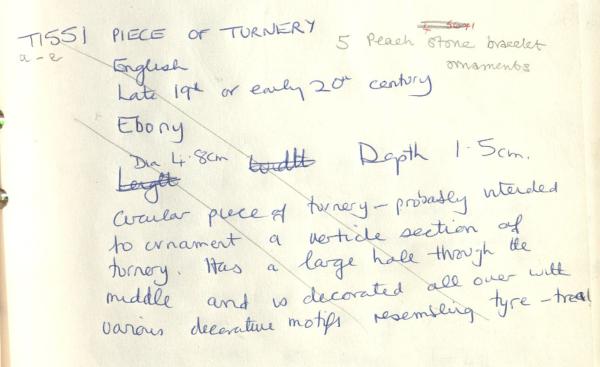 T1551 PIECE OF TURNERY
a-e
5 Peach stone bracelet
ornaments
English
Late 19th or early 20th century
Ebony
Dia 4.8cm Width Depth 1.5cm.
Length
Circular piece of turnery - probably intended
to ornament a verticle section of
turnery. Has a large hole through the
middle and is decorated all over with
various decorative motifs resembling tyre-tread